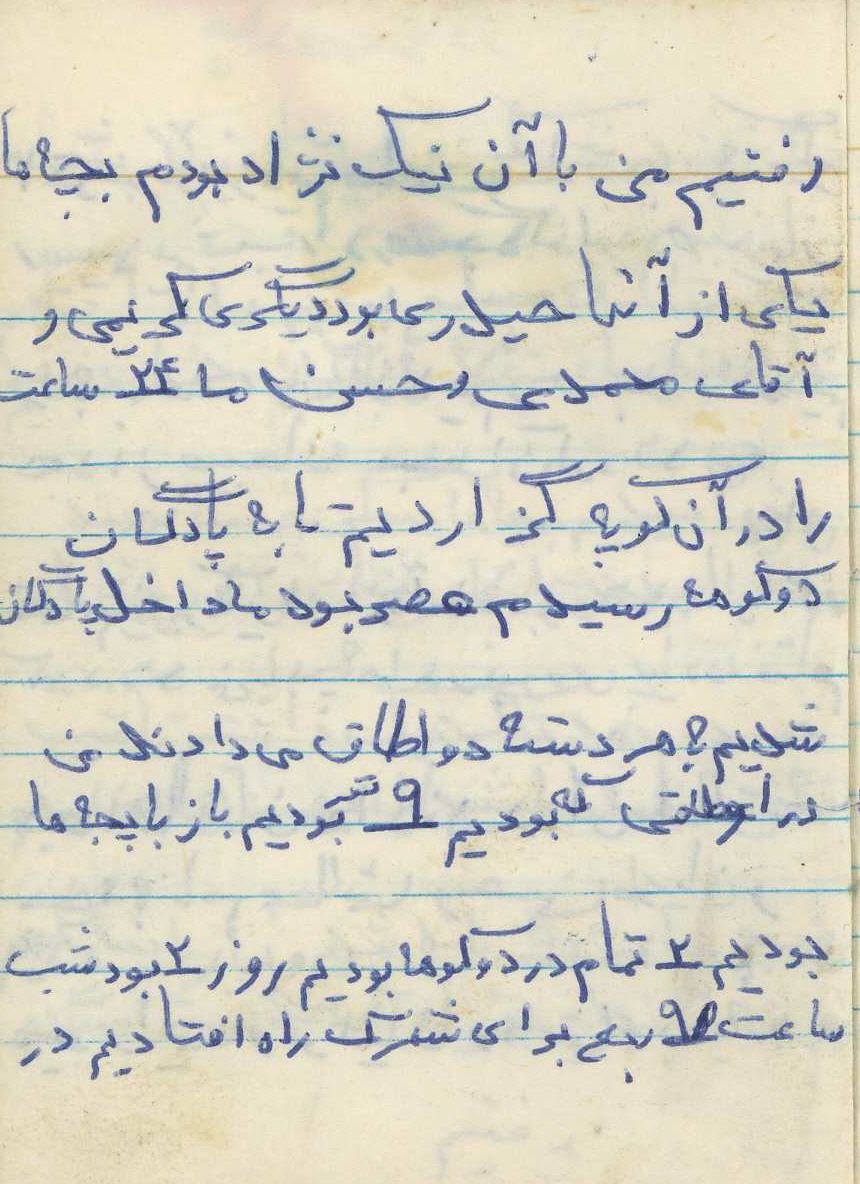 رفتیم من با آن نیک نژاد بودم بچه ها
یکی از آنها حیدری بود دیگری کریمی و
آقای محمدی و حسن ما ۲۴ ساعت
را در آن کوپه گزاردیم تا به پادگان
دوکوهه رسیدم عصر بود ما داخل پادگان
شدیم به هر دسته دو اطاق می دادند من
در اوطاقی که بودیم ۹ نفر بودیم باز با بچه ها
بودیم ۲ تمام در دوکوها بودیم روز ۲ بود شب
ساعت ۹ ربع برای شهرک راه افتادیم در